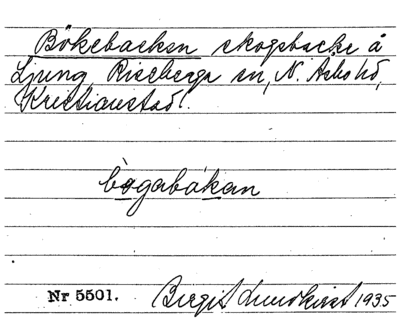 Bökebacken skogsbacke å
Ljung Riseberga sn, N. Åsbo hd,
Kristianstad l.
bøgabakan
Nr 5501. Birgit Lundkvist 1935